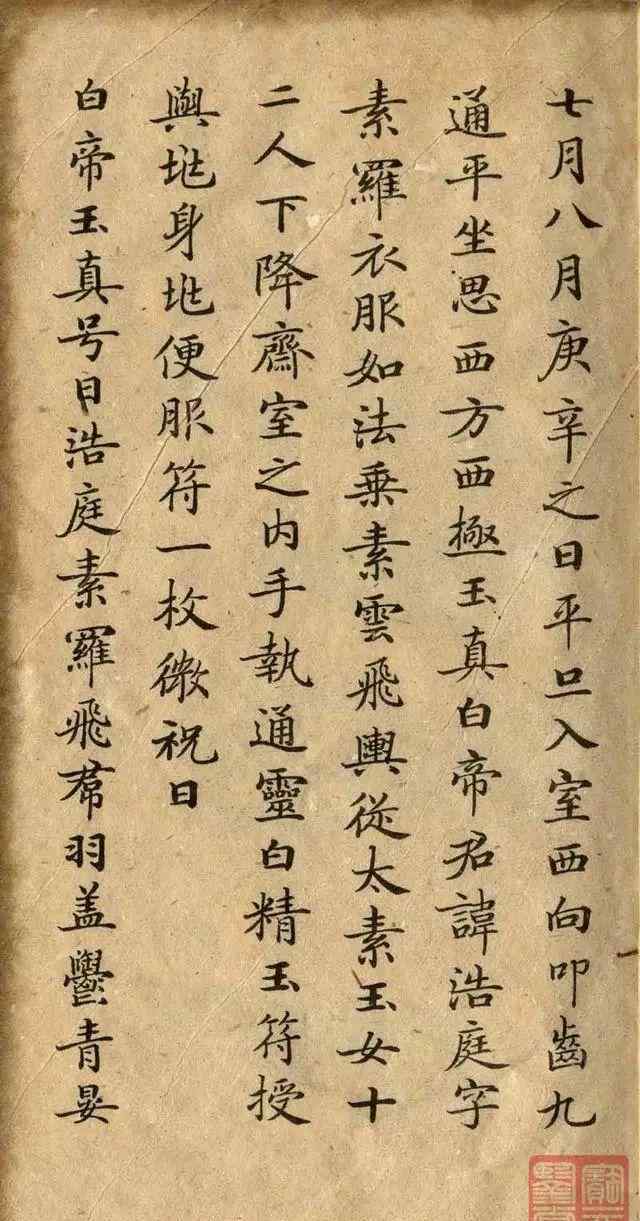 七月八月庚辛之日平旦入室西向叩齒九
通平坐思西方西極玉真白帝君諱浩庭字
素羅衣服如法乗素雲飛輿從太素玉女十
二人下降齋室之内手執通靈白精玉符授
與兆身兆便服符一枚微祝曰
白帝玉真号曰浩庭素羅飛帬羽盖鬱青晏